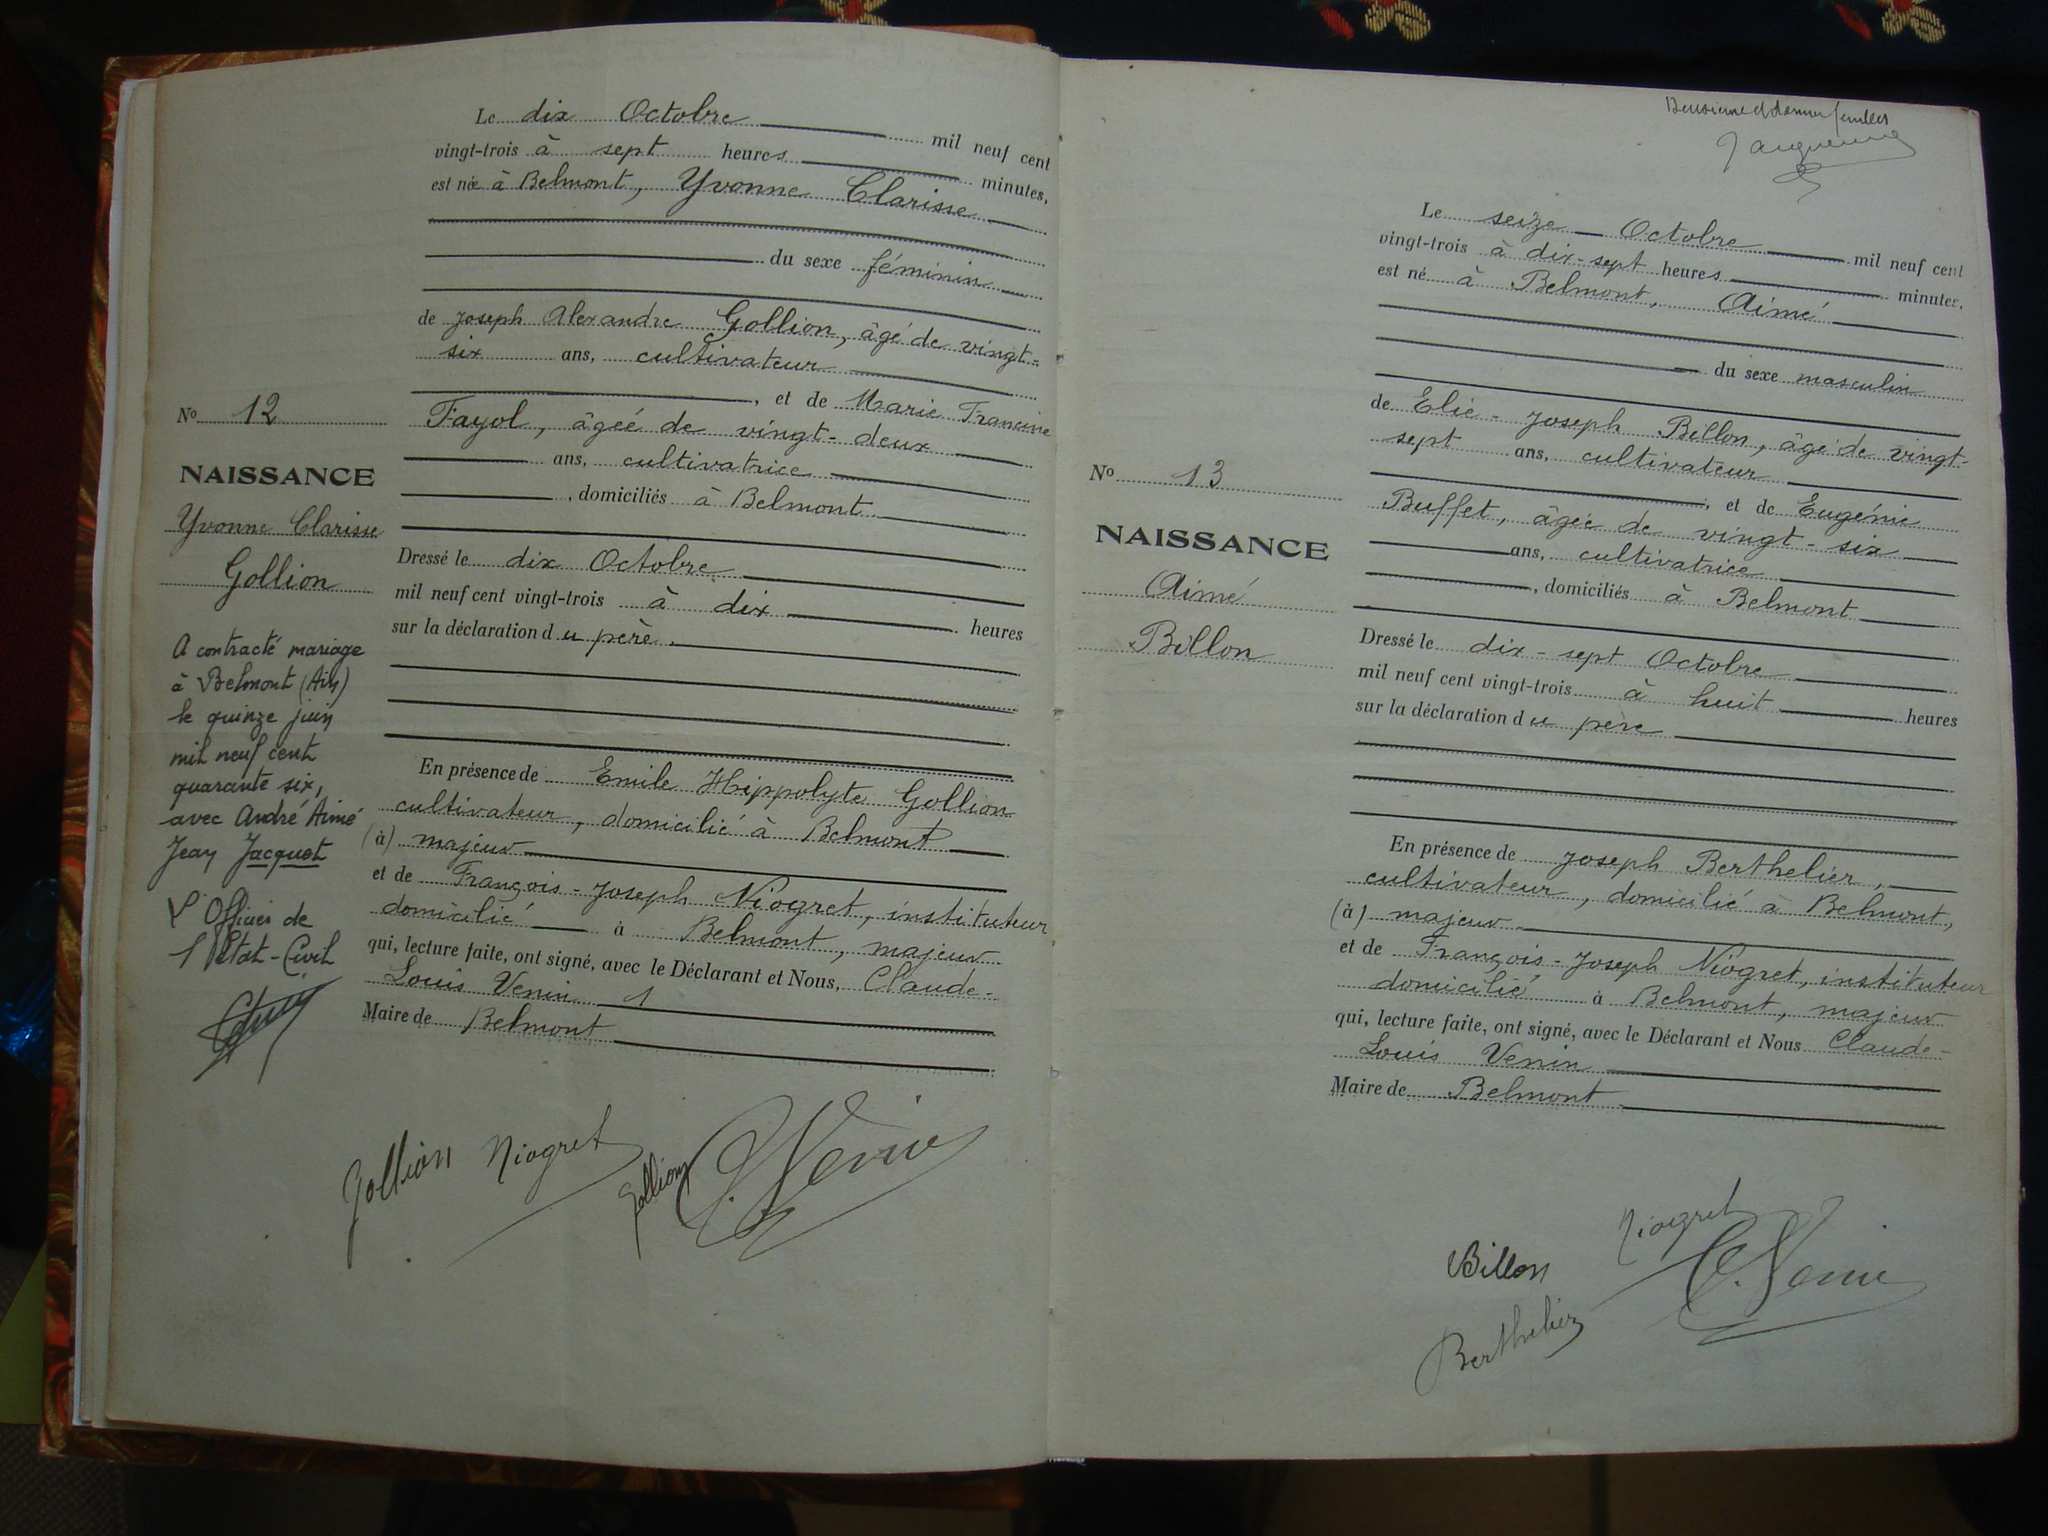 Le dix Octobre mil neuf cent
vingt-trois à sept heures minutes,
est née à Belmont, Yvonne Clarisse
du sexe féminin
de Joseph Alexandre Gollion, âgé de vingt-
six ans, cultivateur
, et de Marie Francine
Fayol, âgée de vingt-deux
ans, cultivatrice
, domiciliés à Belmont
Dressé le dix Octobre
mil neuf cent vingt-trois à dix heures
sur la déclaration du père.
En présence de Emile Hippolyte Gollion
cultivateur, domicilié à Belmont
(à) majeur
et de François-Joseph Niogret, instituteur
domicilié à Belmont, majeur
qui, lecture faite, ont signé, avec le Déclarant et Nous, Claude-
Louis Venin
Maire de Belmont
Gollion Niogret Gollion C. Venin
No 12
NAISSANCE
Yvonne Clarisse
Gollion
A contracté mariage
à Belmont (Ain)
le quinze juin
mil neuf cent
quarante six,
avec André Aimé
Jean Jacquet
L'Officier de
l'Etat-Civil
Deuxième et dernier feuillet
Le seize Octobre mil neuf cent
vingt-trois à dix-sept heures minutes,
est né à Belmont, Aimé
du sexe masculin
de Elie-Joseph Billon, âgé de vingt-
sept ans, cultivateur
, et de Eugénie
Buffet, âgée de vingt-six
ans, cultivatrice
, domiciliés à Belmont
Dressé le dix-sept Octobre
mil neuf cent vingt-trois à huit heures
sur la déclaration du père
En présence de Joseph Berthelier,
cultivateur, domicilié à Belmont,
(à) majeur
et de François-Joseph Niogret, instituteur
domicilié à Belmont, majeur
qui, lecture faite, ont signé, avec le Déclarant et Nous Claude-
Louis Venin
Maire de Belmont
Niogret
Billon C. Venin
Berthelier
No 13
NAISSANCE
Aimé
Billon